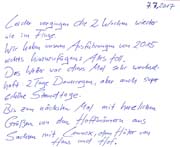 7.7.2017
Leider vergingen die 2 Wochen wieder
wie im Fluge.
Wir haben unseren Ausführungen von 2015
nichts hinzuzufügen. Alles toll.
Das Wetter war dieses Mal sehr wechsel-
haft. 2 Tage Dauerregen, aber auch super
schöne Sonnentage.
Bis zum nächsten Mal mit herzlichen
Grüßen von den Hoffmännern aus
Sachsen mit , dem Hüter von
Haus und Hof.